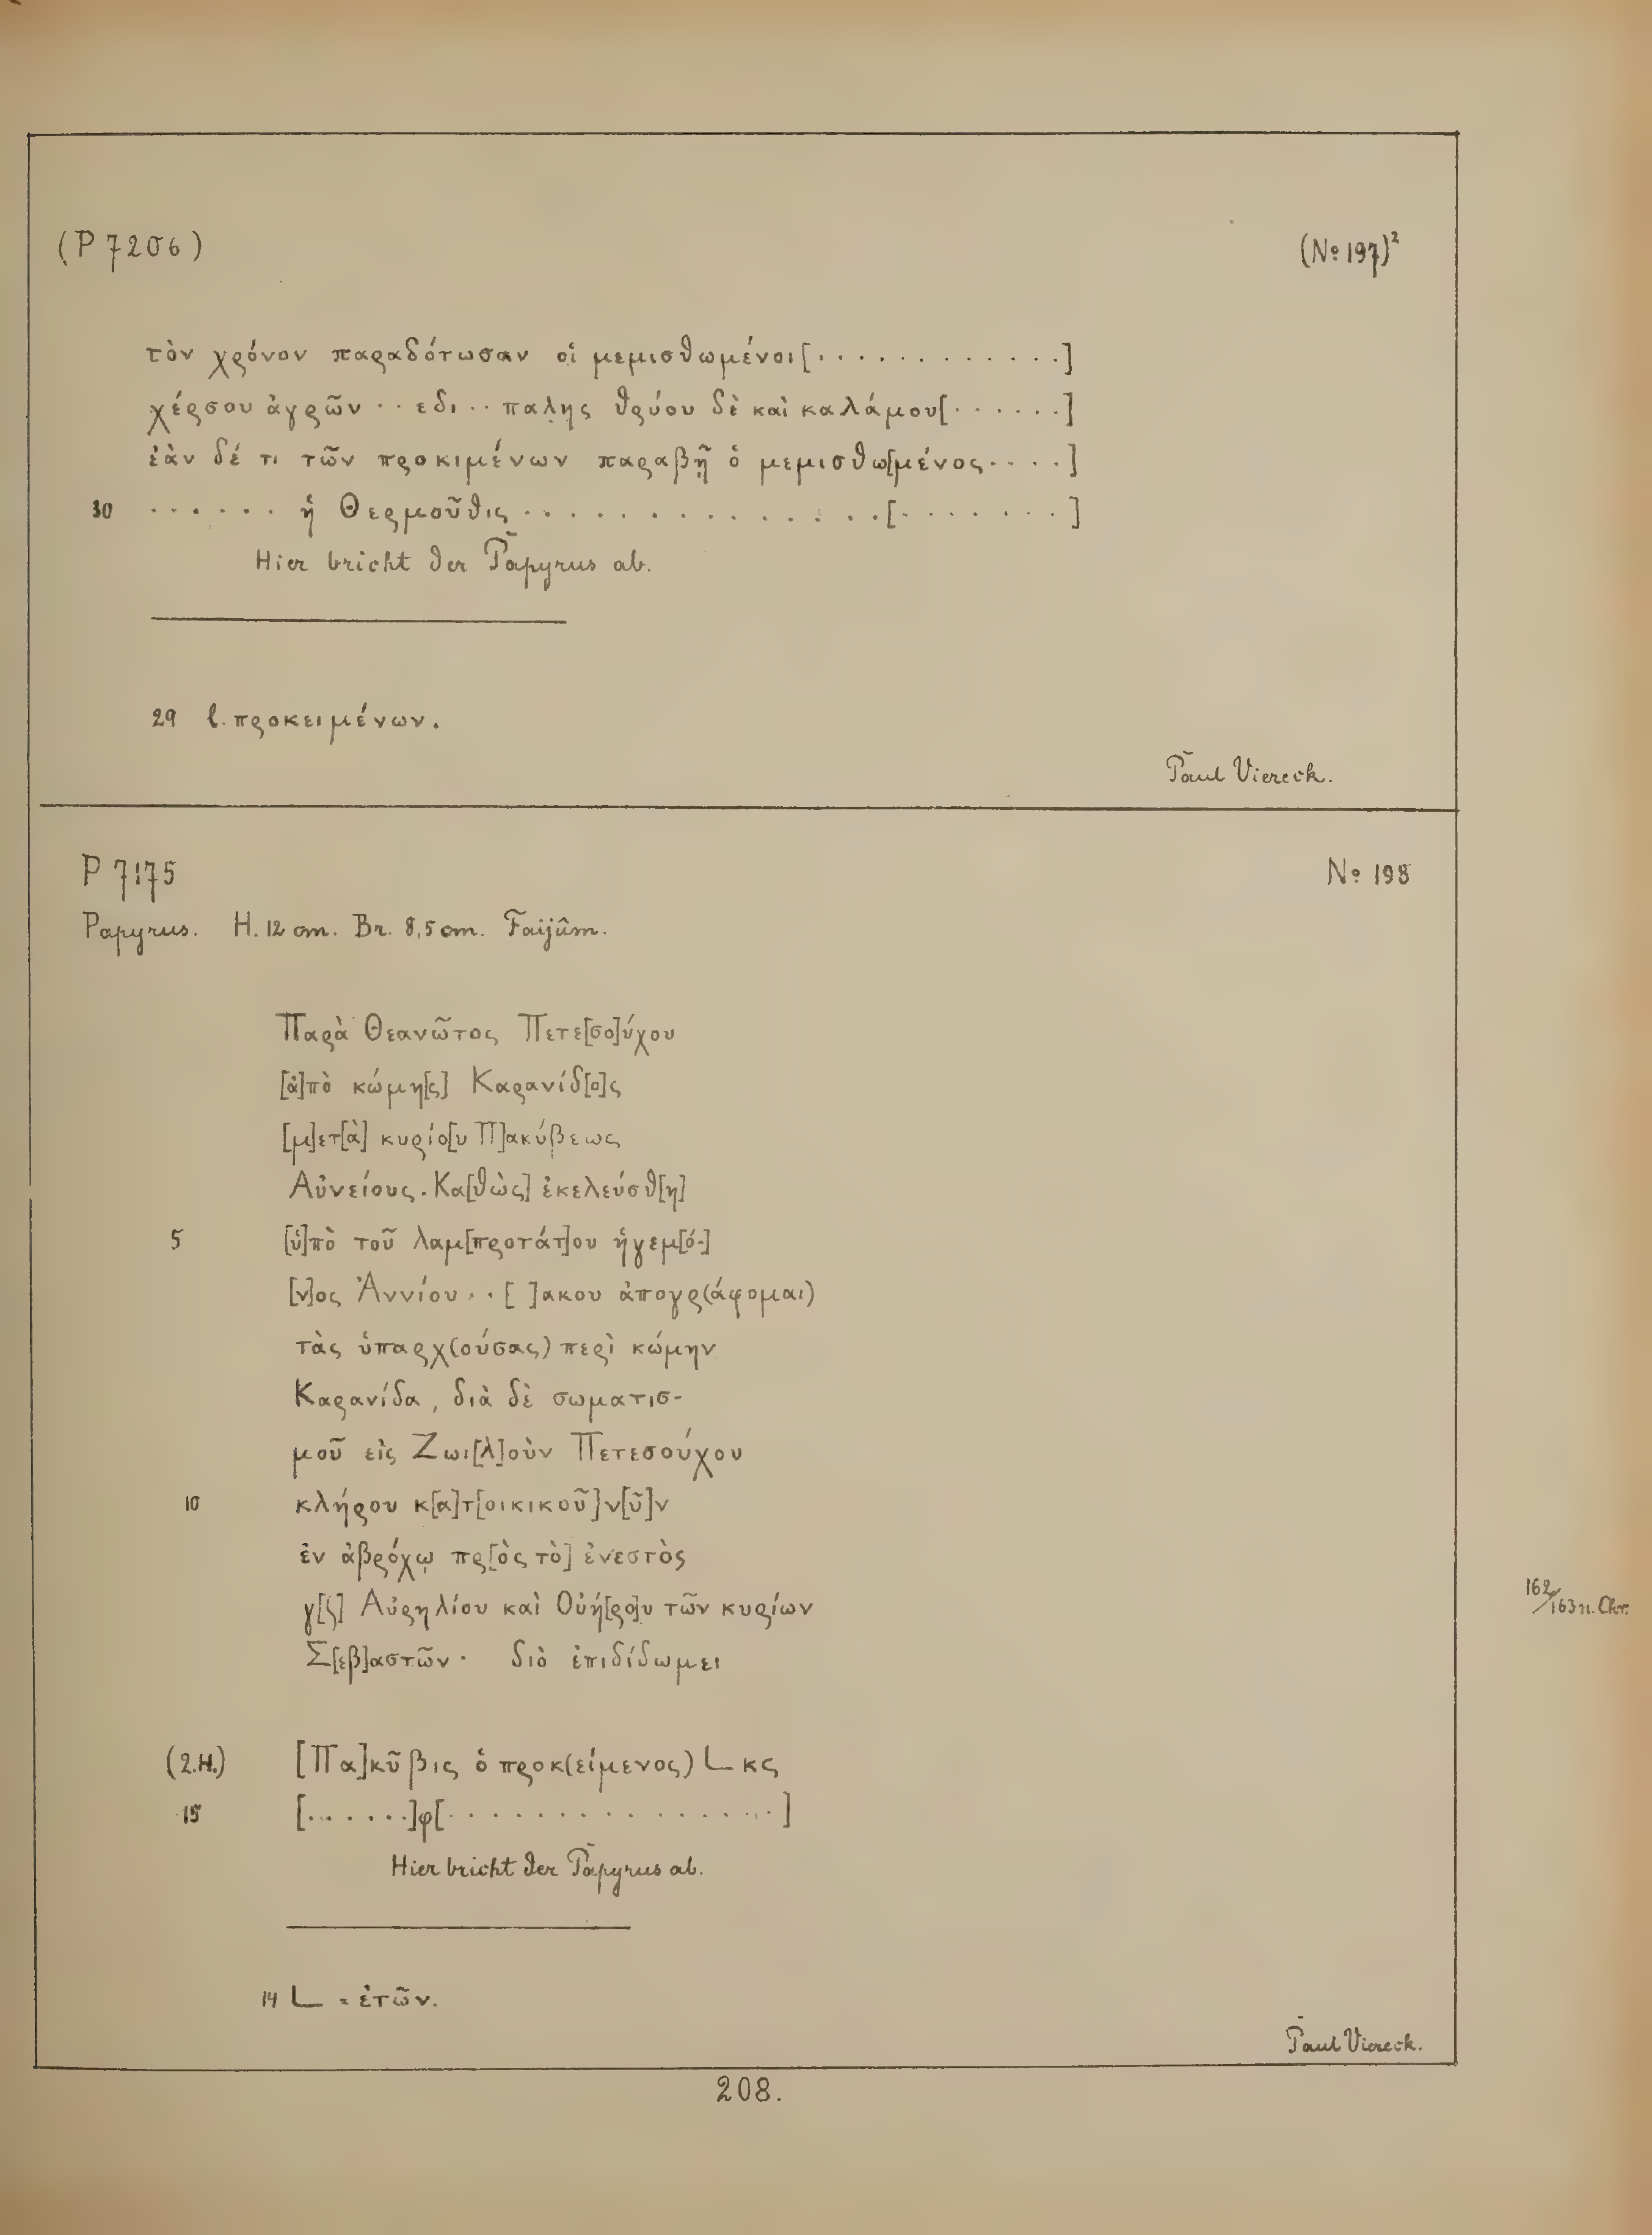 (P 7206) (No 197)²
τὸν χρόνον παραδότωσαν οἱ μεμισθωμένοι[. . . . . . . . . . . .]
χέρσου ἀγρῶν · · εδι · · παλης θρύου δὲ καὶ καλάμου[. . . . . .]
ἐὰν δέ τι τῶν προκιμένων παραβῇ ὁ μεμισθω[μένος. . . .]
30 . . . . . . ἡ Θερμοῦθις . . . . . . . . . . . . . .[. . . . . . . .]
Hier bricht der Papyrus ab.
29 l. προκειμένων.
Paul Viereck.
P 7175 No 198
Papyrus. H. 12 cm. Br. 8,5 cm. Faijûm.
Παρὰ Θεανῶτος Πετε[σο]ύχου
[ἀ]πὸ κώμη[ς] Καρανίδ[ο]ς
[μ]ετ[ὰ] κυρίο[υ Π]ακύβεως
Αὐνείους. Κα[θὼς] ἐκελεύσθ[η]
5 [ὑ]πὸ τοῦ λαμ[προτάτ]ου ἡγεμ[ό-]
[ν]ος Ἀννίου . . [ ]ακου ἀπογρ(άφομαι)
τὰς ὑπαρχ(ούσας) περὶ κώμην
Καρανίδα, διὰ δὲ σωματισ-
μοῦ εἰς Ζωι[λ]οὺν Πετεσούχου
10 κλήρου κ[α]τ[οικικοῦ] ν[ῦ]ν
ἐν ἀβρόχῳ πρ[ὸς τὸ] ἐνεστὸς
γ[ʃ] Αὐρηλίου καὶ Οὐή[ρο]υ τῶν κυρίων 162/163 n. Chr.
Σ[εβ]αστῶν · διὸ ἐπιδίδωμει
(2.H.) [Πα]κῦβις ὁ προκ(είμενος) L κς
15 [. . . . . . .]φ[. . . . . . . . . . . . . . . .]
Hier bricht der Papyrus ab.
14 L = ἐτῶν.
Paul Viereck.
208.